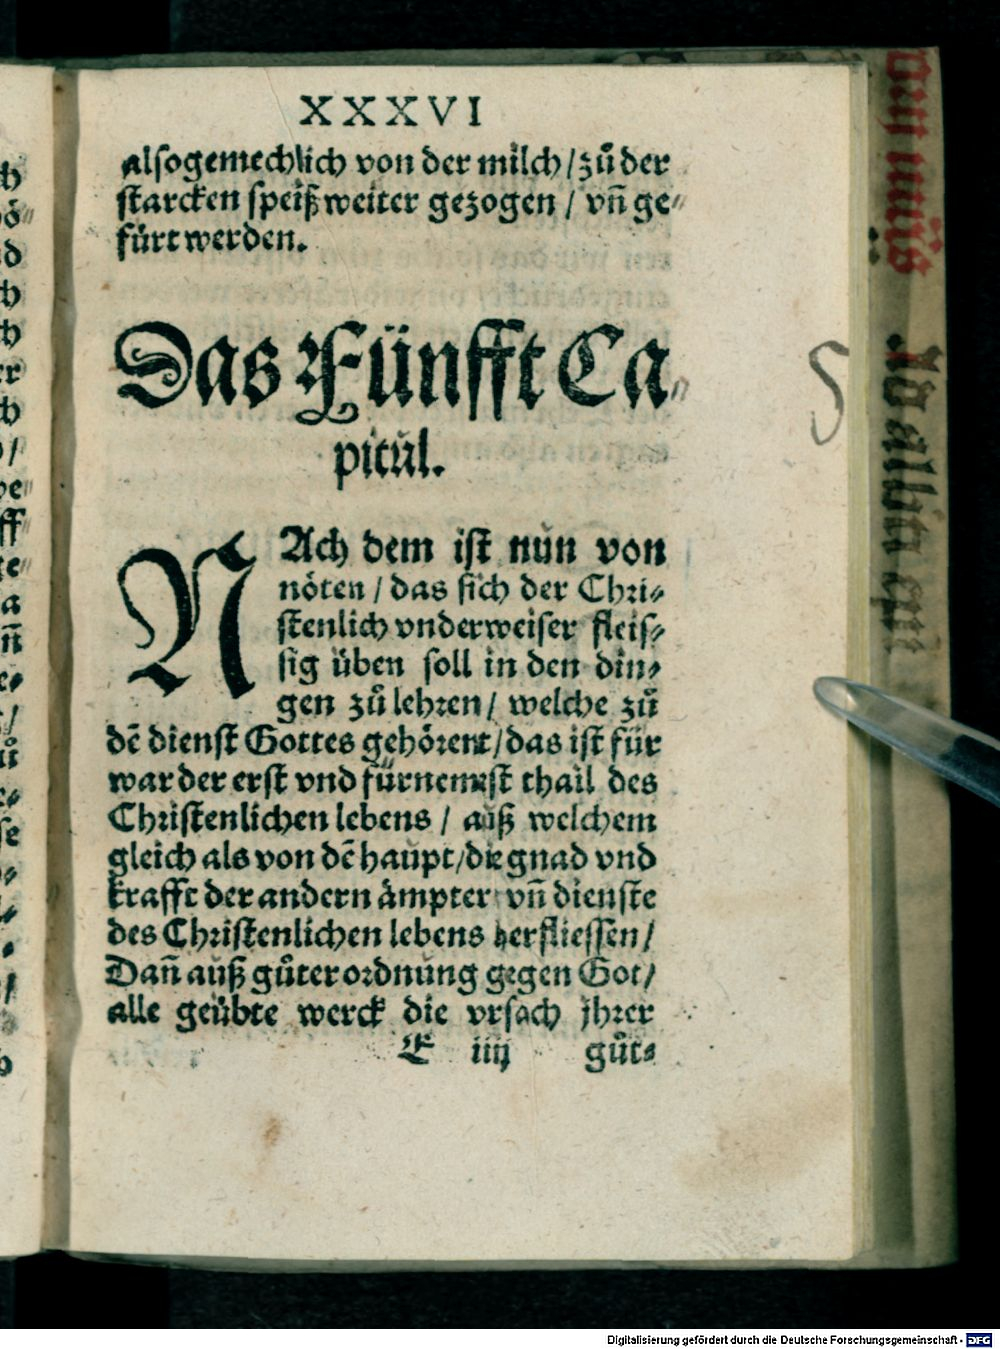 XXXVI
alsogemechlich von der milch / zů der
starcken speiß weiter gezogen / vñ ge⸗
fürt werden.
Das Fünfft Ca⸗
pitůl.
NAch dem ist nůn von
nöten / das sich der Chri⸗
stenlich vnderweiser fleis⸗
sig üben soll in den din⸗
gen zů lehren / welche zů
dē dienst Gottes gehörent / das ist für
war der erst vnd fürnemest thail des
Christenlichen lebens / auß welchem
gleich als von dē haupt / die gnad vnd
krafft der andern ämpter vñ dienste
des Christenlichen lebens herfliessen /
Dañ auß gůter ordnung gegen Got /
alle geübte werck die vrsach jhrer
E iiij gůt⸗
5
Digitalisierung gefördert durch die Deutsche Forschungsgemeinschaft - DFG